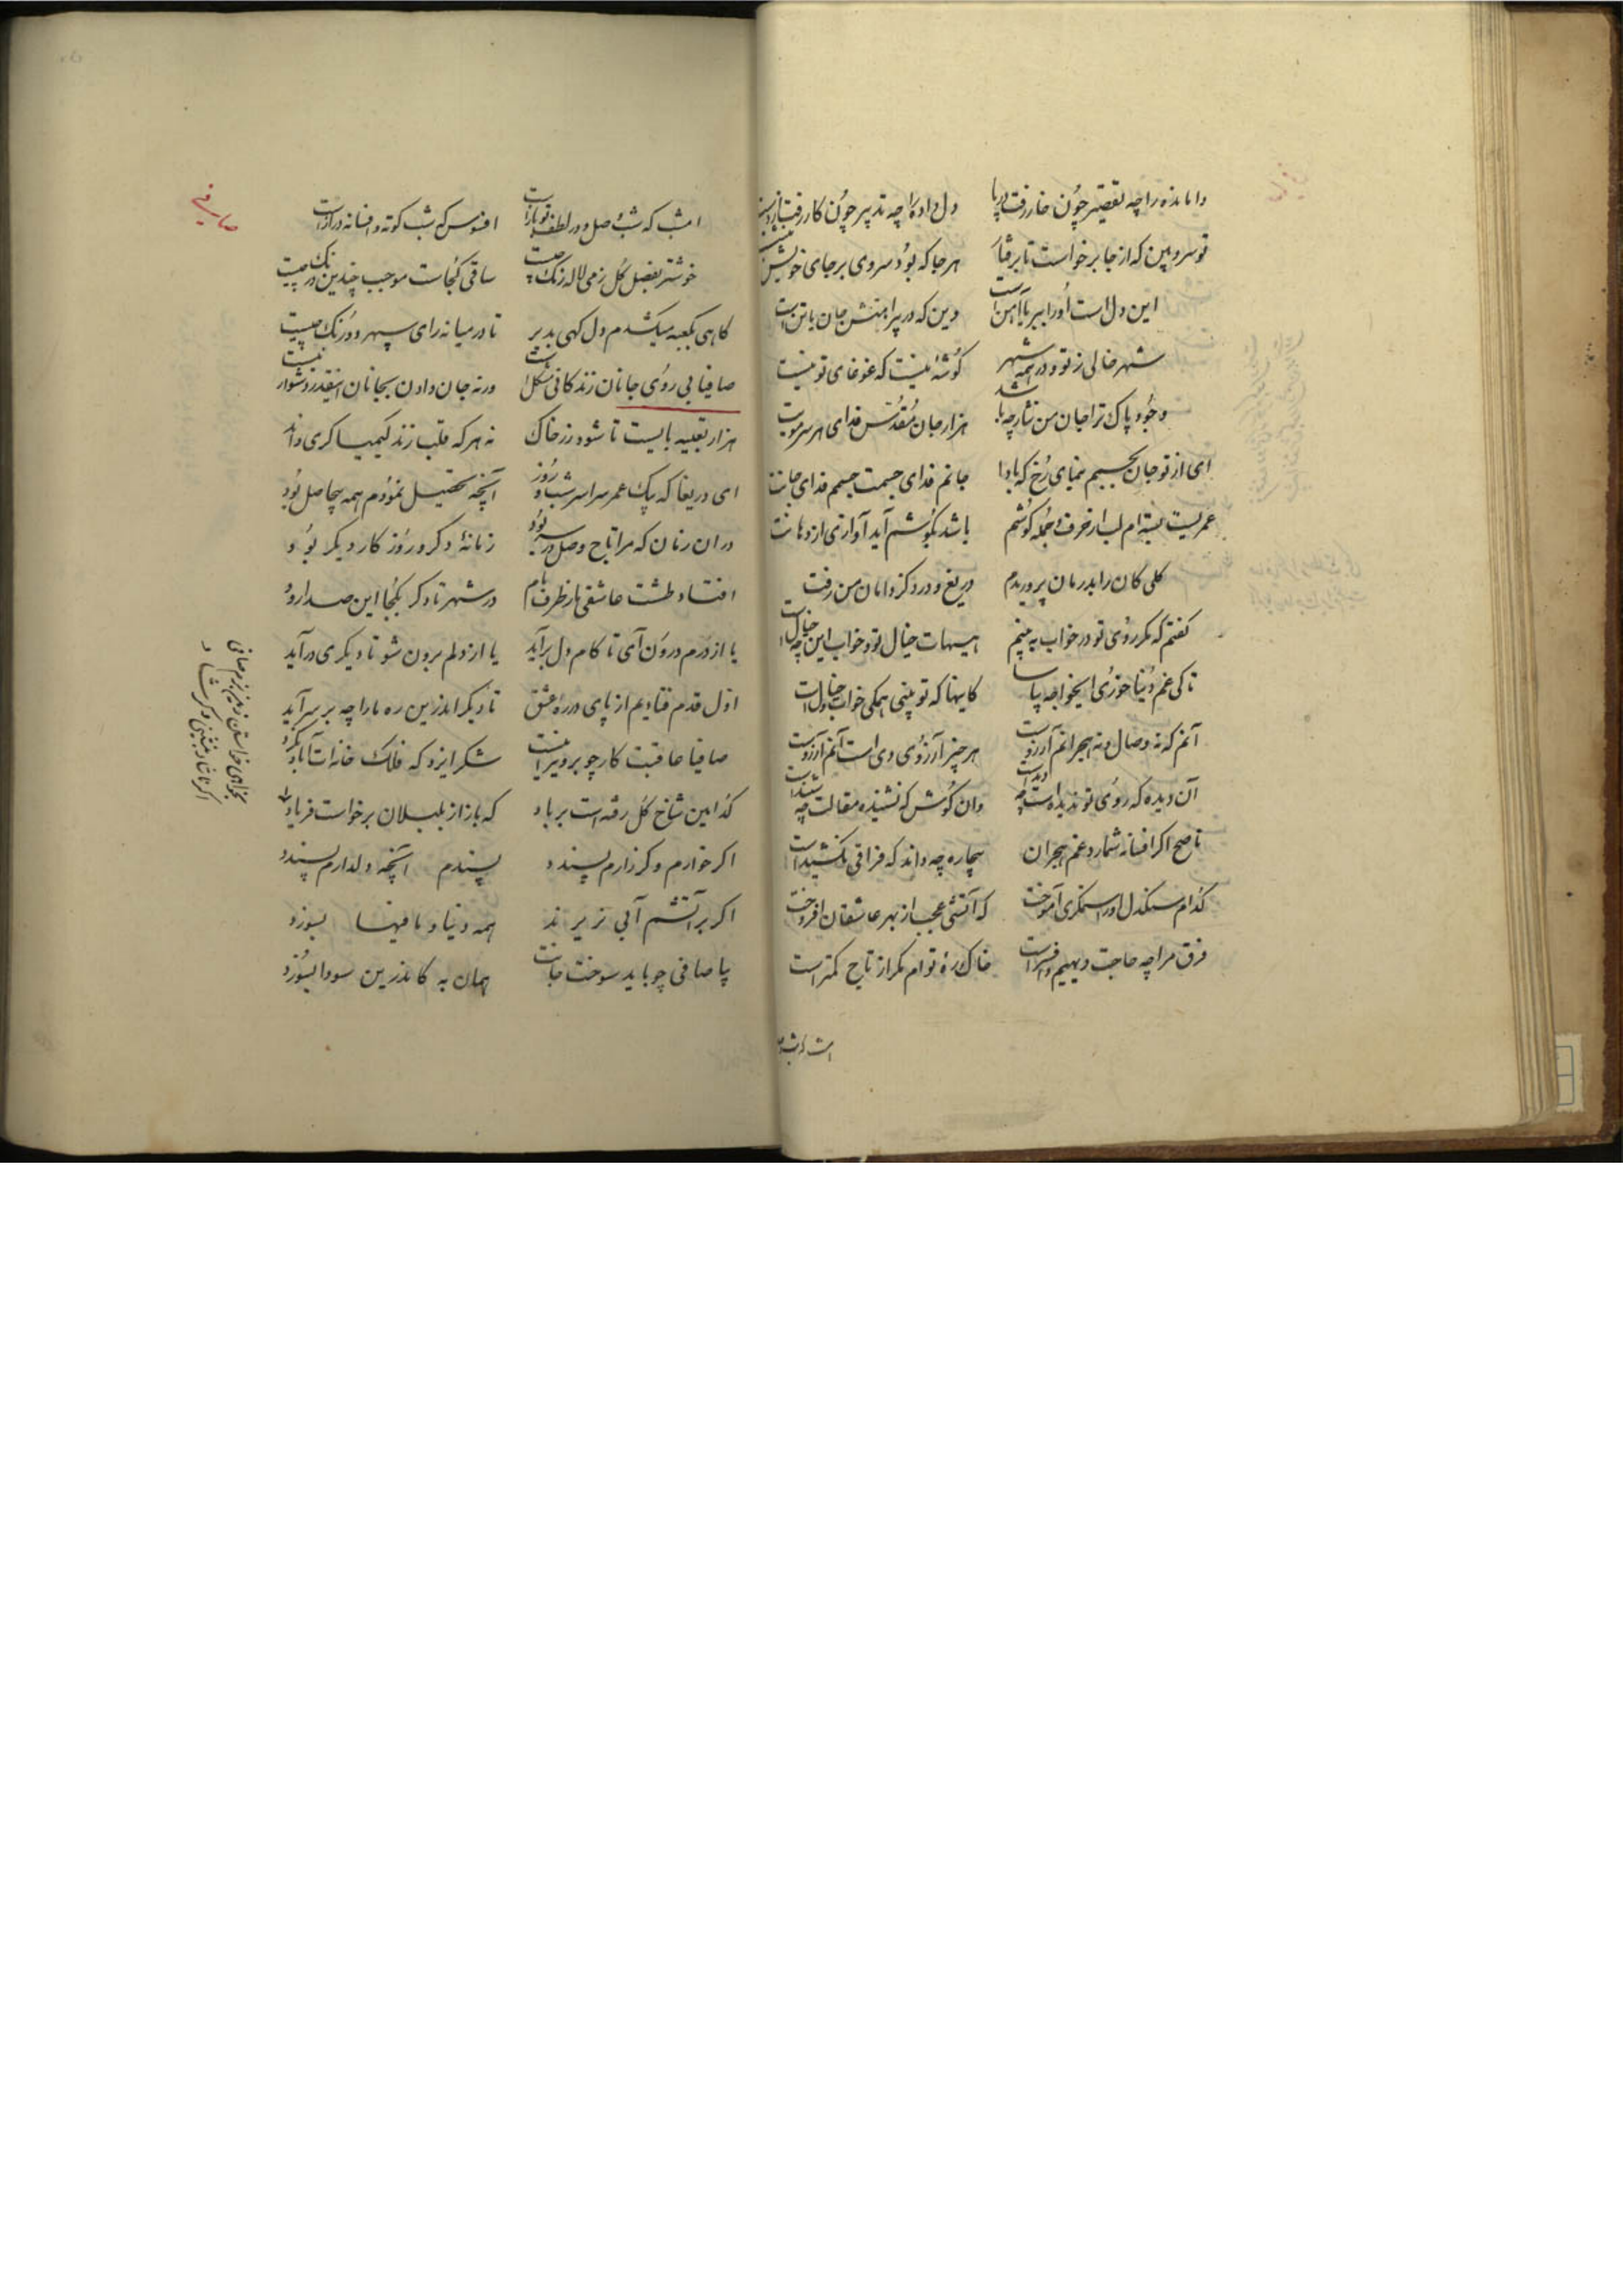 وامانده را چه تقصیر چون خار رفت در پا دل داده را چه تدبیر چون کار رفت از دست
تو سرو بین که از جا برخواست تا برفتار هر جا که بود سروی بر جای خویش بنشست
این دل است اورا ببر یا آهن است وین که در پیراهنش جان یا تن است
شهر خالی ز تو و در همه شهر گوشهٔ نیست که غوغای تو نیست
وجود پاک ترا جان من نثار چه باشد هزار جان مقدس فدای هر سر مویت
ای از تو جان بجسمم بنمای رخ که بادا جانم فدای جسمت جسمم فدای جانت
عمریست بسته‌ام لب از حرف و جمله گوشم باشد بگوشم آید آوازی از دهانت
گلی کان را بدرمان پروریدم دریغ و درد کز دامان من رفت
گفتم که مگر روی تو در خواب به بینم هیهات خیال تو و خواب این چه خیال است
تا کی غم دنیا خوری ایخواجه بیاسا کاینها که تو بینی همکی خواب و خیال است
آنم که نه وصال و نه هجرانم آرزوست هر چیز آرزوی وی است آنم آرزوست
آن دیده که روی تو ندیده است چه دیداست وان گوش که نشنیده مقالت چه شنیداست
ناصح اگر افسانه شمارد غم هجران بیچاره چه داند که فراقی نکشیداست
کدام سنگدل او را ستمگری آموخت که آتشی عجب از بهر عاشقان افروخت
فرق مرا چه حاجت دیهیم و افسر است خاک ره توام مگر از تاج کمتر است
امشب که شب
صافی
امشب که شب وصل و در لطف تو باز است افسوس که شب کوته و افسانه دراز است
خوشتر بفصل گل ز می لاله رنگ چیست ساقی کجاست موجب چندین درنگ چیست
گاهی بکعبه میکشدم دل گهی بدیر تا در میانه رای سپهر دو رنگ چیست
صافیا بی روی جانان زندگانی مشکل است ورنه جان دادن بجانان اینقدر دشوار نیست
هزار تعبیه بایست تا شود زر خاک نه هر که قلب زند کیمیاگری داند
ای دریغا که یک عمر سراسر شب و روز آنچه تحصیل نمودم همه بیحاصل بود
در ان زمان که مرا تاج وصل بر سر بود زمانهٔ دگر و روز کار دیگر بود
افتاد طشت عاشقی ما ز طرف بام در شهر تا دگر بکجا این صدا رود
یا از درم درون آی تا کام دل برآید یا از دلم برون شو تا دیگری درآید
اول قدم فتادیم از پای در ره عشق تا دیگر اندرین ره ما را چه بر سر آید
صافیا عاقبت کار چو بر ویرانیست شکر ایزد که فلک خانه‌ات آباد نکرد
کدامین شاخ گل رفته است بر باد که باز از بلبلان برخواست فریاد
اگر خوارم و گر زارم پسندد پسندم آنچه دلدارم پسندد
اگر بر آتشم آبی نریزند همه دنیا و ما فیها بسوزد
بیا صافی چو باید سوخت جانت همان به کاندرین سودا بسوزد